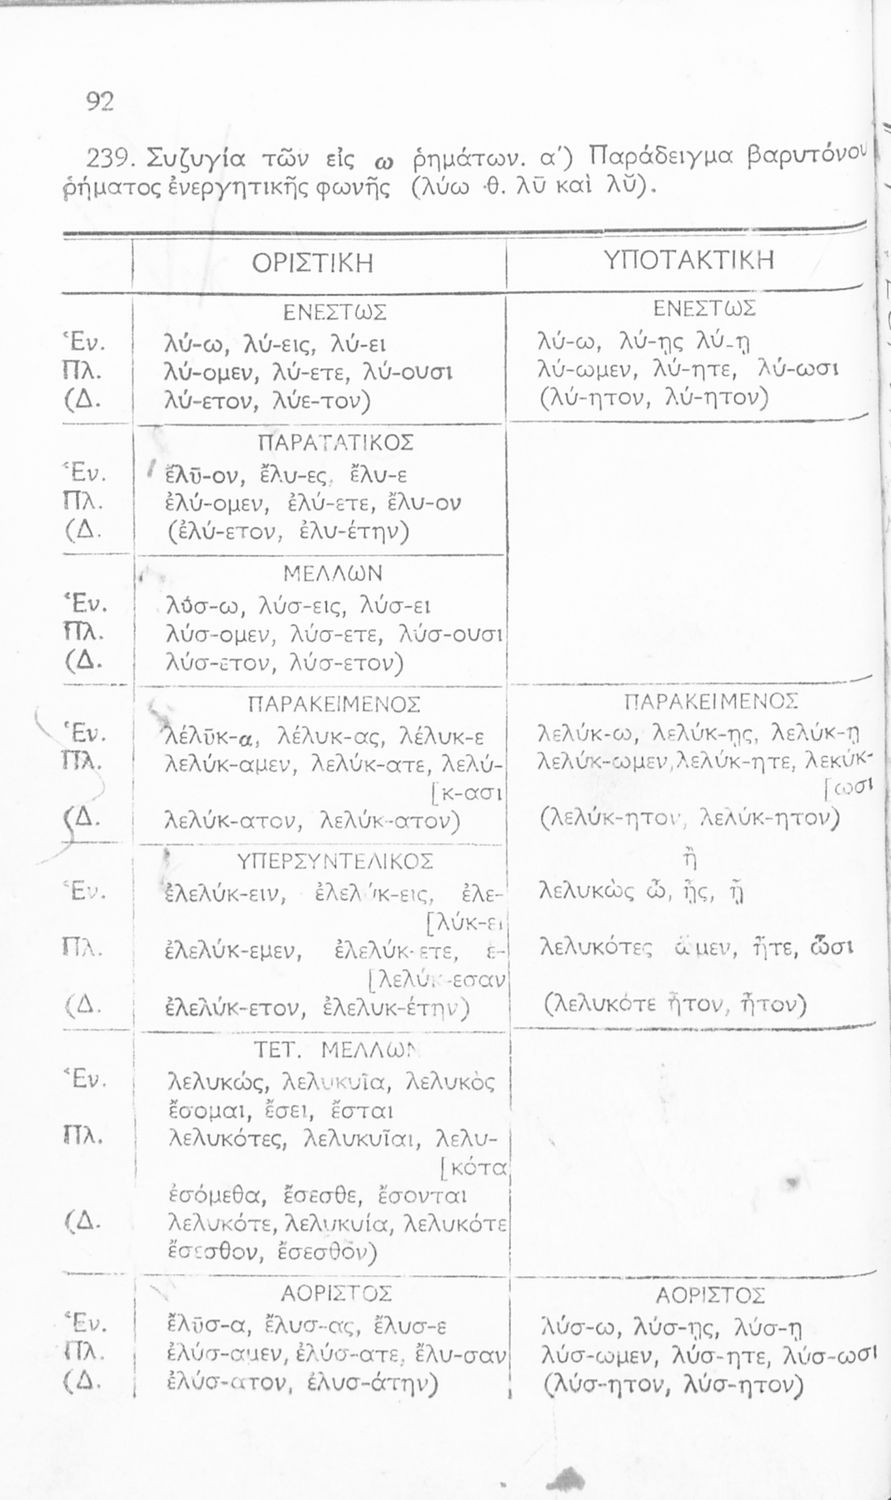 92
239. Συζυγία τῶν εἰς ω ῥημάτων. α') Παράδειγμα βαρυτόνου
ῥήματος ἐνεργητικῆς φωνῆς (λύω -θ. λῡ καὶ λῠ).
ΟΡΙΣΤΙΚΗ ΥΠΟΤΑΚΤΙΚΗ
ΕΝΕΣΤΩΣ ΕΝΕΣΤΩΣ
Ἑν. λύ-ω, λύ-εις, λύ-ει λύ-ω, λύ-ῃς λύ-ῃ
Πλ. λύ-ομεν, λύ-ετε, λύ-ουσι λύ-ωμεν, λύ-ητε, λύ-ωσι
(Δ. λύ-ετον, λύε-τον) (λύ-ητον, λύ-ητον)
ΠΑΡΑΤΑΤΙΚΟΣ
Ἑν. ἔλῡ-ον, ἔλυ-ες, ἔλυ-ε
Πλ. ἐλύ-ομεν, ἐλύ-ετε, ἔλυ-ον
(Δ. (ἐλύ-ετον, ἐλυ-έτην)
ΜΕΛΛΩΝ
Ἑν. λύσ-ω, λύσ-εις, λύσ-ει
Πλ. λύσ-ομεν, λύσ-ετε, λύσ-ουσι
(Δ. λύσ-ετον, λύσ-ετον)
ΠΑΡΑΚΕΙΜΕΝΟΣ ΠΑΡΑΚΕΙΜΕΝΟΣ
Ἑν. λέλῠκ-α, λέλυκ-ας, λέλυκ-ε λελύκ-ω, λελύκ-ῃς, λελύκ-ῃ
Πλ. λελύκ-αμεν, λελύκ-ατε, λελύ- λελύκ-ωμεν, λελύκ-ητε, λεκύκ-
[κ-ασι [ωσι
(Δ. λελύκ-ατον, λελύκ-ατον) (λελύκ-ητον, λελύκ-ητον)
ΥΠΕΡΣΥΝΤΕΛΙΚΟΣ ἢ
Ἑν. ἐλελύκ-ειν, ἐλελύκ-εις, ἐλε- λελυκὼς ὦ, ᾖς, ᾖ
[λύκ-ει
Πλ. ἐλελύκ-εμεν, ἐλελύκ-ετε, ἐ- λελυκότες ὦμεν, ἦτε, ὦσι
[λελύκ-εσαν
(Δ. ἐλελύκ-ετον, ἐλελυκ-έτην) (λελυκότε ἦτον, ἦτον)
ΤΕΤ. ΜΕΛΛΩΝ
Ἑν. λελυκώς, λελυκυῖα, λελυκὸς
ἔσομαι, ἔσει, ἔσται
Πλ. λελυκότες, λελυκυῖαι, λελυ-
[κότα
ἐσόμεθα, ἔσεσθε, ἔσονται
(Δ. λελυκότε, λελυκυία, λελυκότε
ἔσεσθον, ἔσεσθον)
ΑΟΡΙΣΤΟΣ ΑΟΡΙΣΤΟΣ
Ἑν. ἔλῡσ-α, ἔλυσ-ας, ἔλυσ-ε λύσ-ω, λύσ-ῃς, λύσ-ῃ
Πλ. ἐλύσ-αμεν, ἐλύσ-ατε, ἔλυ-σαν λύσ-ωμεν, λύσ-ητε, λύσ-ωσι
(Δ. ἐλύσ-ατον, ἐλυσ-άτην) (λύσ-ητον, λύσ-ητον)